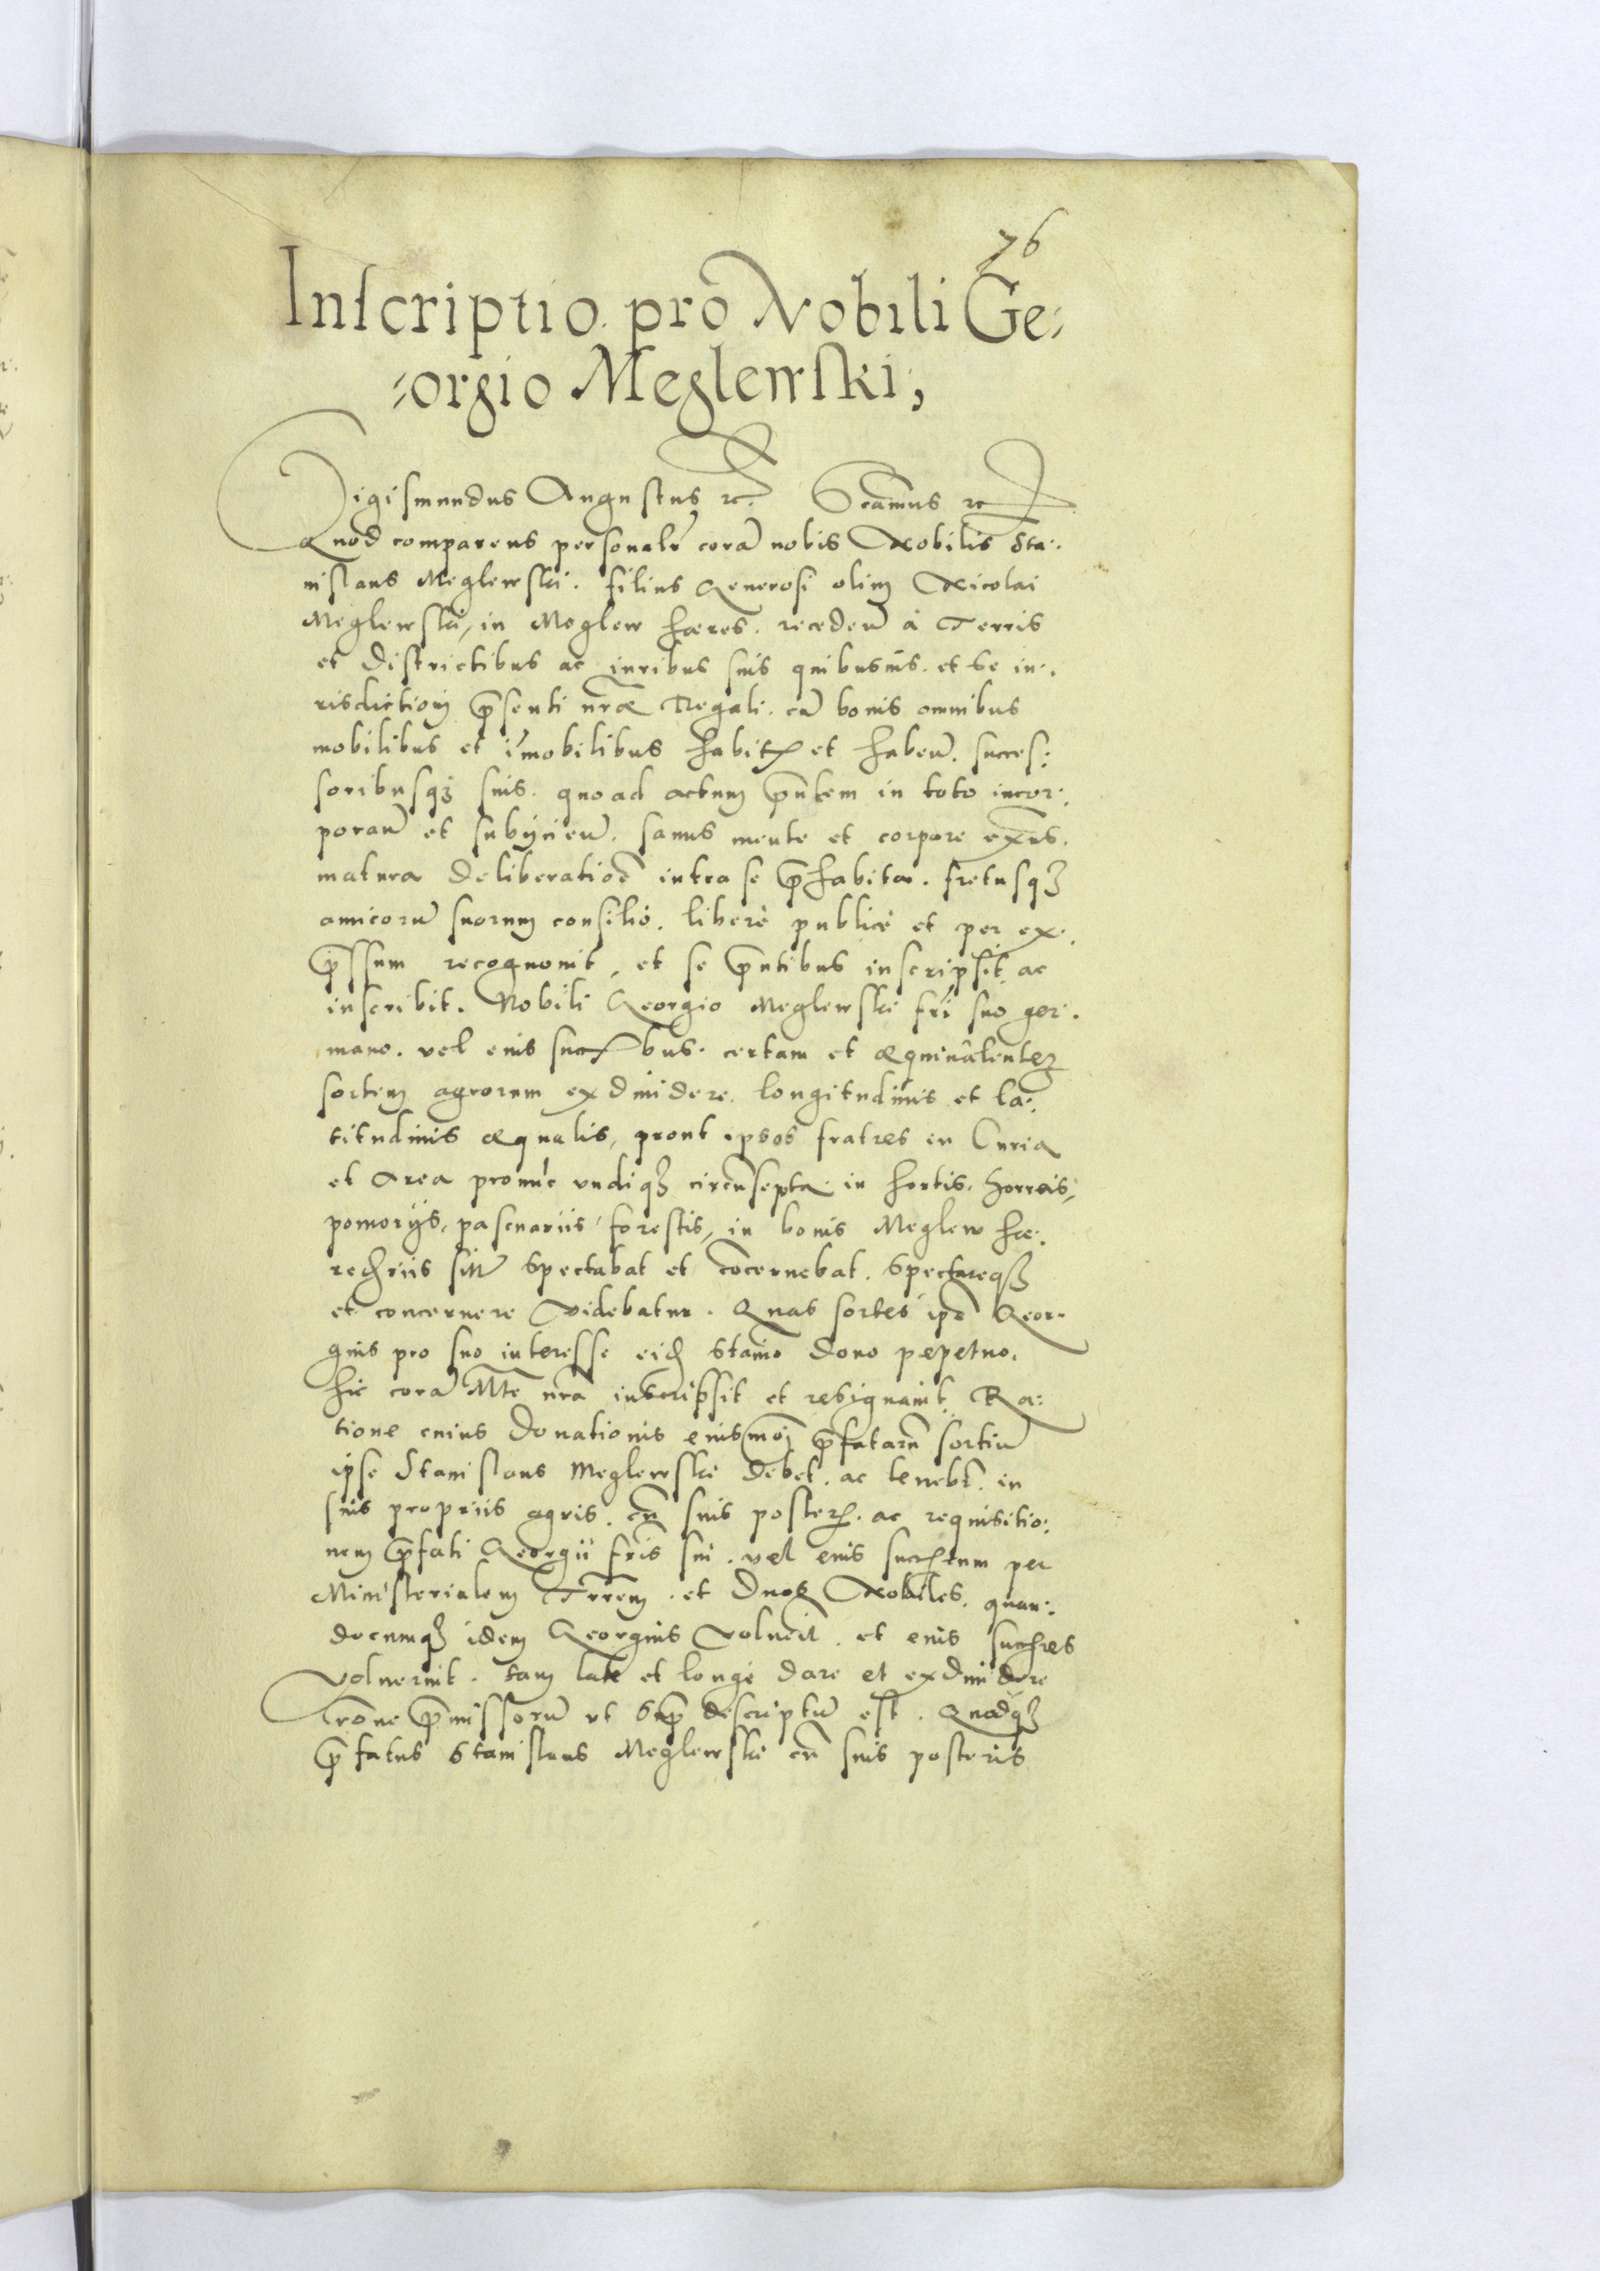 76
Inscriptio pro Nobili Ge⸗
⸗orgio Meglewski,
Sigismundus Augustus etc. Scamus etc
Quod comparens personalr corā nobis Nobilis Sta⸗
nislaus Meglewski. filius Generosi olim Nicolai
Meglewski, in Meglew hæres. recedeñ à Terris
et Districtibus ac iuribus suis quibusuis. et se iu⸗
risdictioni p̄senti nr̄æ Regali. cū bonis omnibus
mobilibus et im̄obilibus habitis et habeñ. succes⸗
soribusq3 suis. quo ad actum pn̄tem in toto incor⸗
porañ et subijcieñ. sanus mente et corpore exn̄s.
matura deliberatiōe intra se p̄habita. fretusq3
amicorū suorum consilio. liberè publicè et per ex⸗
p̄ssum recognouit, et se pn̄tibus inscripsit ac
inscribit. Nobili Georgio Meglewski fr̄i suo ger⸗
mano. vel eius succ̄bus. certam et æquiualentem
sortem agrorum exdiuidere. longitudinis et la⸗
titudinis æqualis, prout ipsos fratres in Curia
et Area pronūc vndiq3 circūsepta in hortis. horreis,
pomorijs, pascuariis forestis, in bonis Meglew hæ⸗
redriis sitū spectabat et cōcernebat. spectareq3
et concernere videbatur. Quas sortes ipē Geor⸗
gius pro suo interesse eid Stanio dono ꝑpetuo.
hic corā Mte nr̄a inscripsit et resignauit. Ra⸗
tione cuius donationis eiusmōi p̄fatarū sortiū
ipse Stanislaus Meglewski debet. ac tenebr̄. in
suis propriis agris. cū suis posteris. ac requisitio⸗
nem p̄fati Georgii fr̄is sui. vel eius succ̄rum per
Ministerialem Trr̄em. et duos Nobiles. quan⸗
documq3 idem Georgius voluerit. et eius succ̄res
voluerint. tam late et longè dare et exdiuidere
rōne p̄missorū vt sup̄ descriptū est. Quodq3
p̄fatus Stanislaus Meglewski cū suis posteris